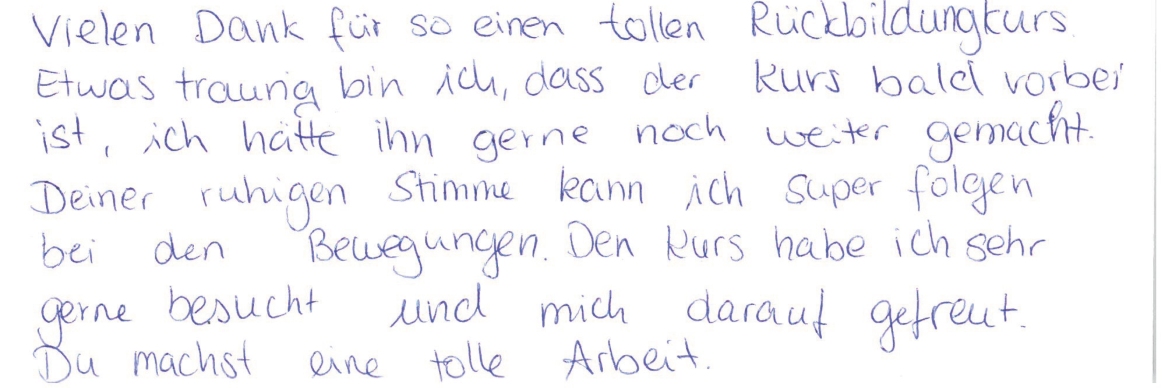 Vielen Dank für so einen tollen Rückbildungkurs.
Etwas traurig bin ich, dass der Kurs bald vorbei
ist, ich hätte ihn gerne noch weiter gemacht.
Deiner ruhigen Stimme kann ich super folgen
bei den Bewegungen. Den Kurs habe ich sehr
gerne besucht und mich darauf gefreut.
Du machst eine tolle Arbeit.